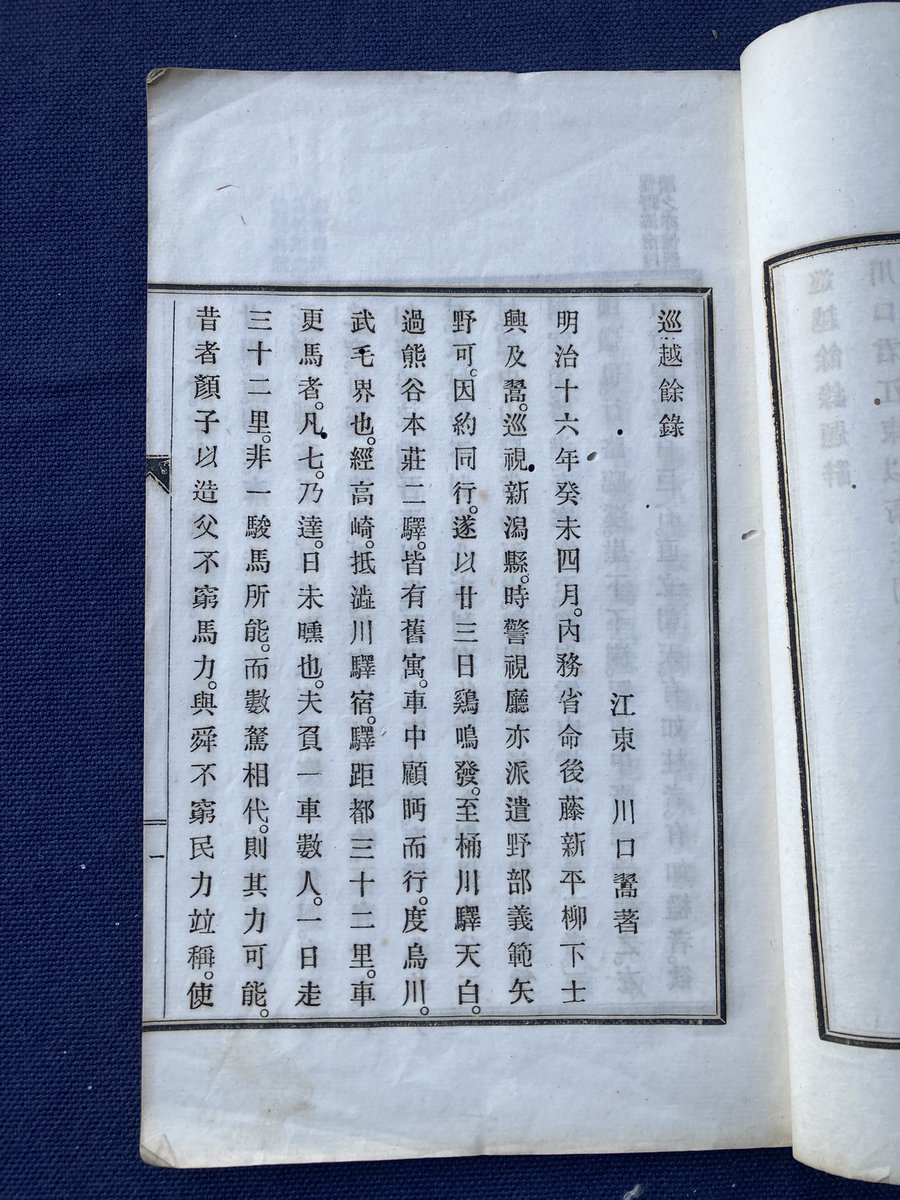 巡越餘錄
江東 川口翯著
明治十六年癸未四月。內務省命後藤新平柳下士
興及翯。巡視新潟縣。時警視廳亦派遣野部義範矢
野可。因約同行。遂以廿三日鷄鳴發。至桶川驛天白。
過熊谷本莊二驛。皆有舊寓。車中顧眄而行。度烏川。
武毛界也。經高崎。抵澁川驛宿。驛距都三十二里。車
更馬者。凡七。乃達。日未曛也。夫負一車數人。一日走
三十二里。非一駿馬所能。而數駑相代。則其力可能。
昔者顏子以造父不窮馬力。與舜不窮民力竝稱。使
一
川口君江東以
巡越餘錄題辭